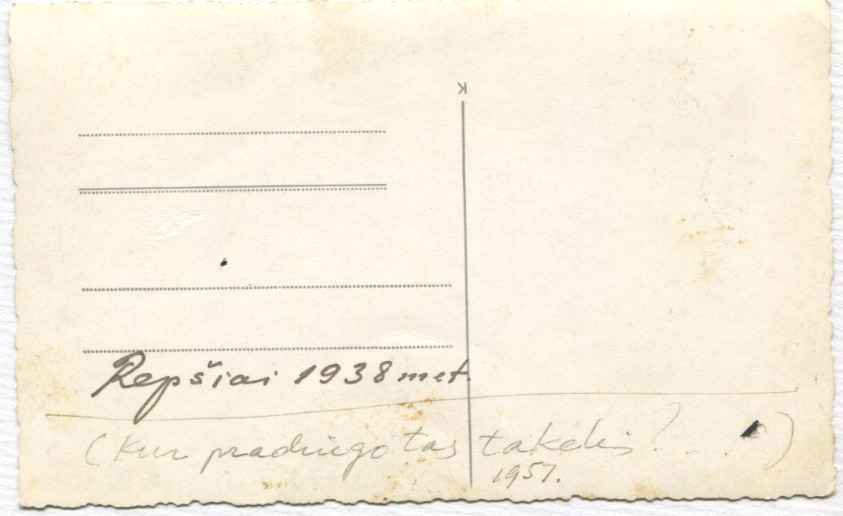 K
Repšiai 1938 met.
(Kur pradingo tas takelis? . . . )
1957.